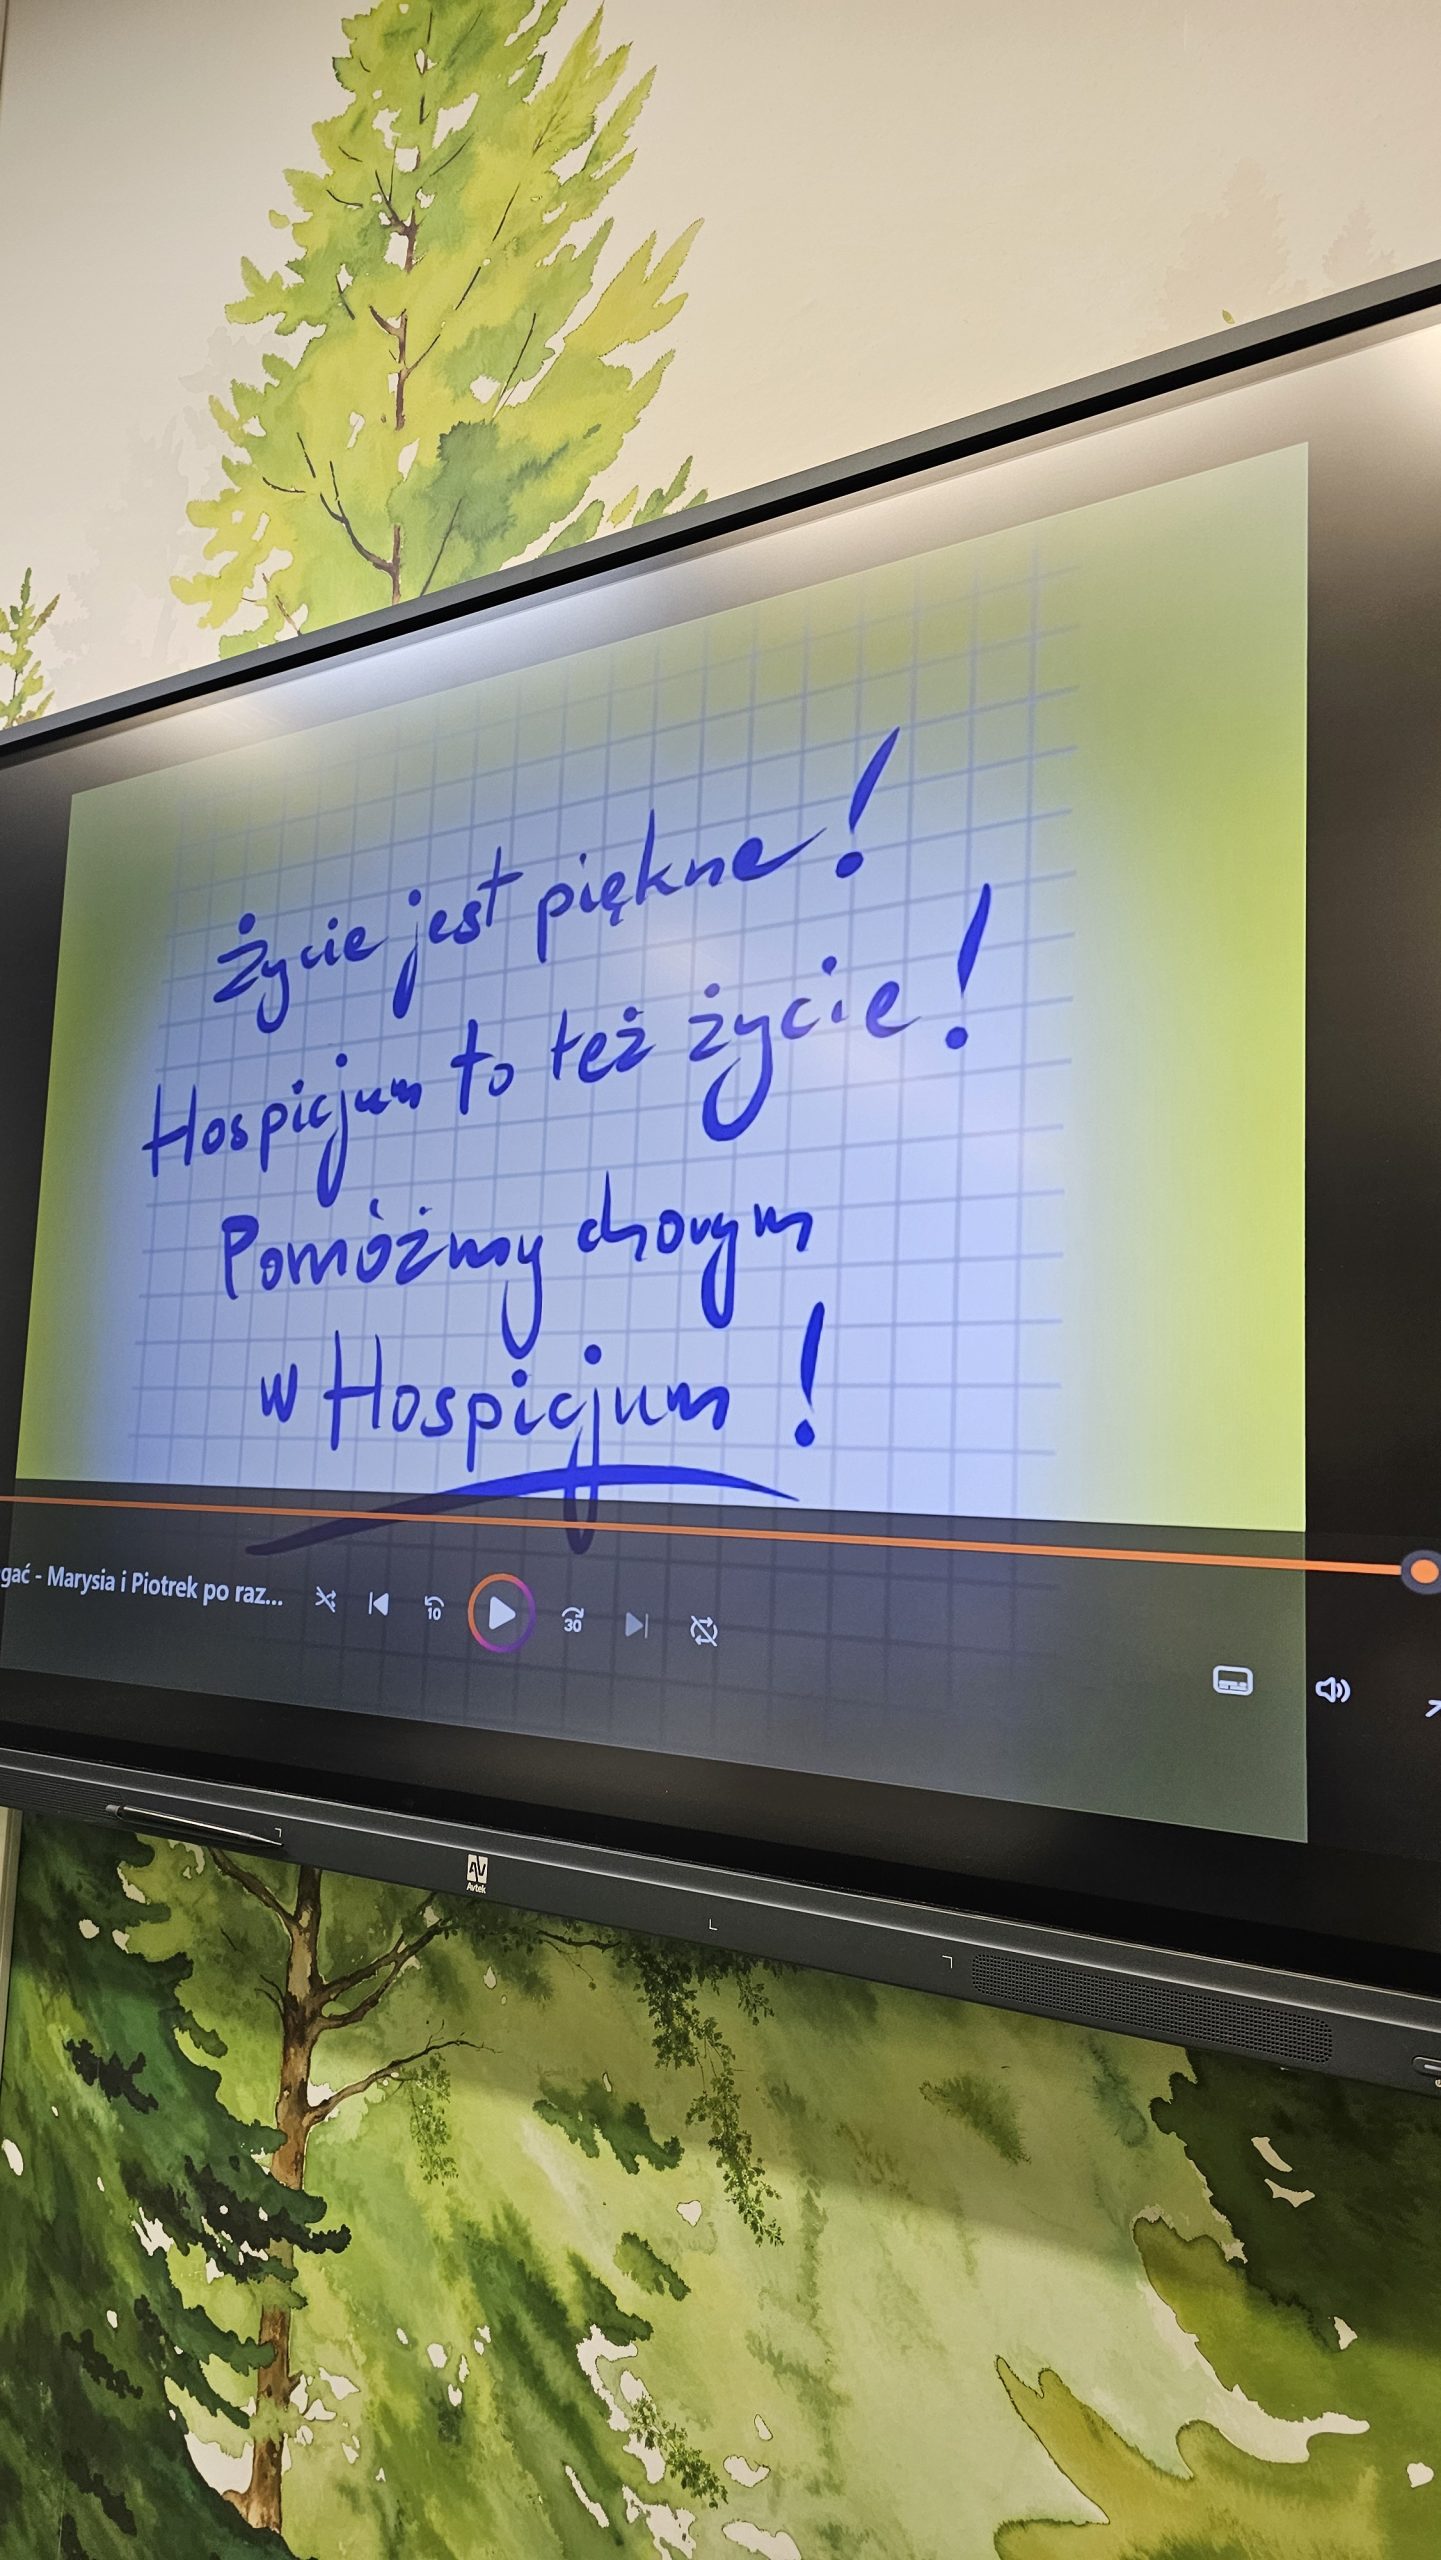 Życie jest piękne!
Hospicjum to też życie!
Pomóżmy chorym
w Hospicjum!
gać - Marysia i Piotrek po raz...
10
30
Avtek